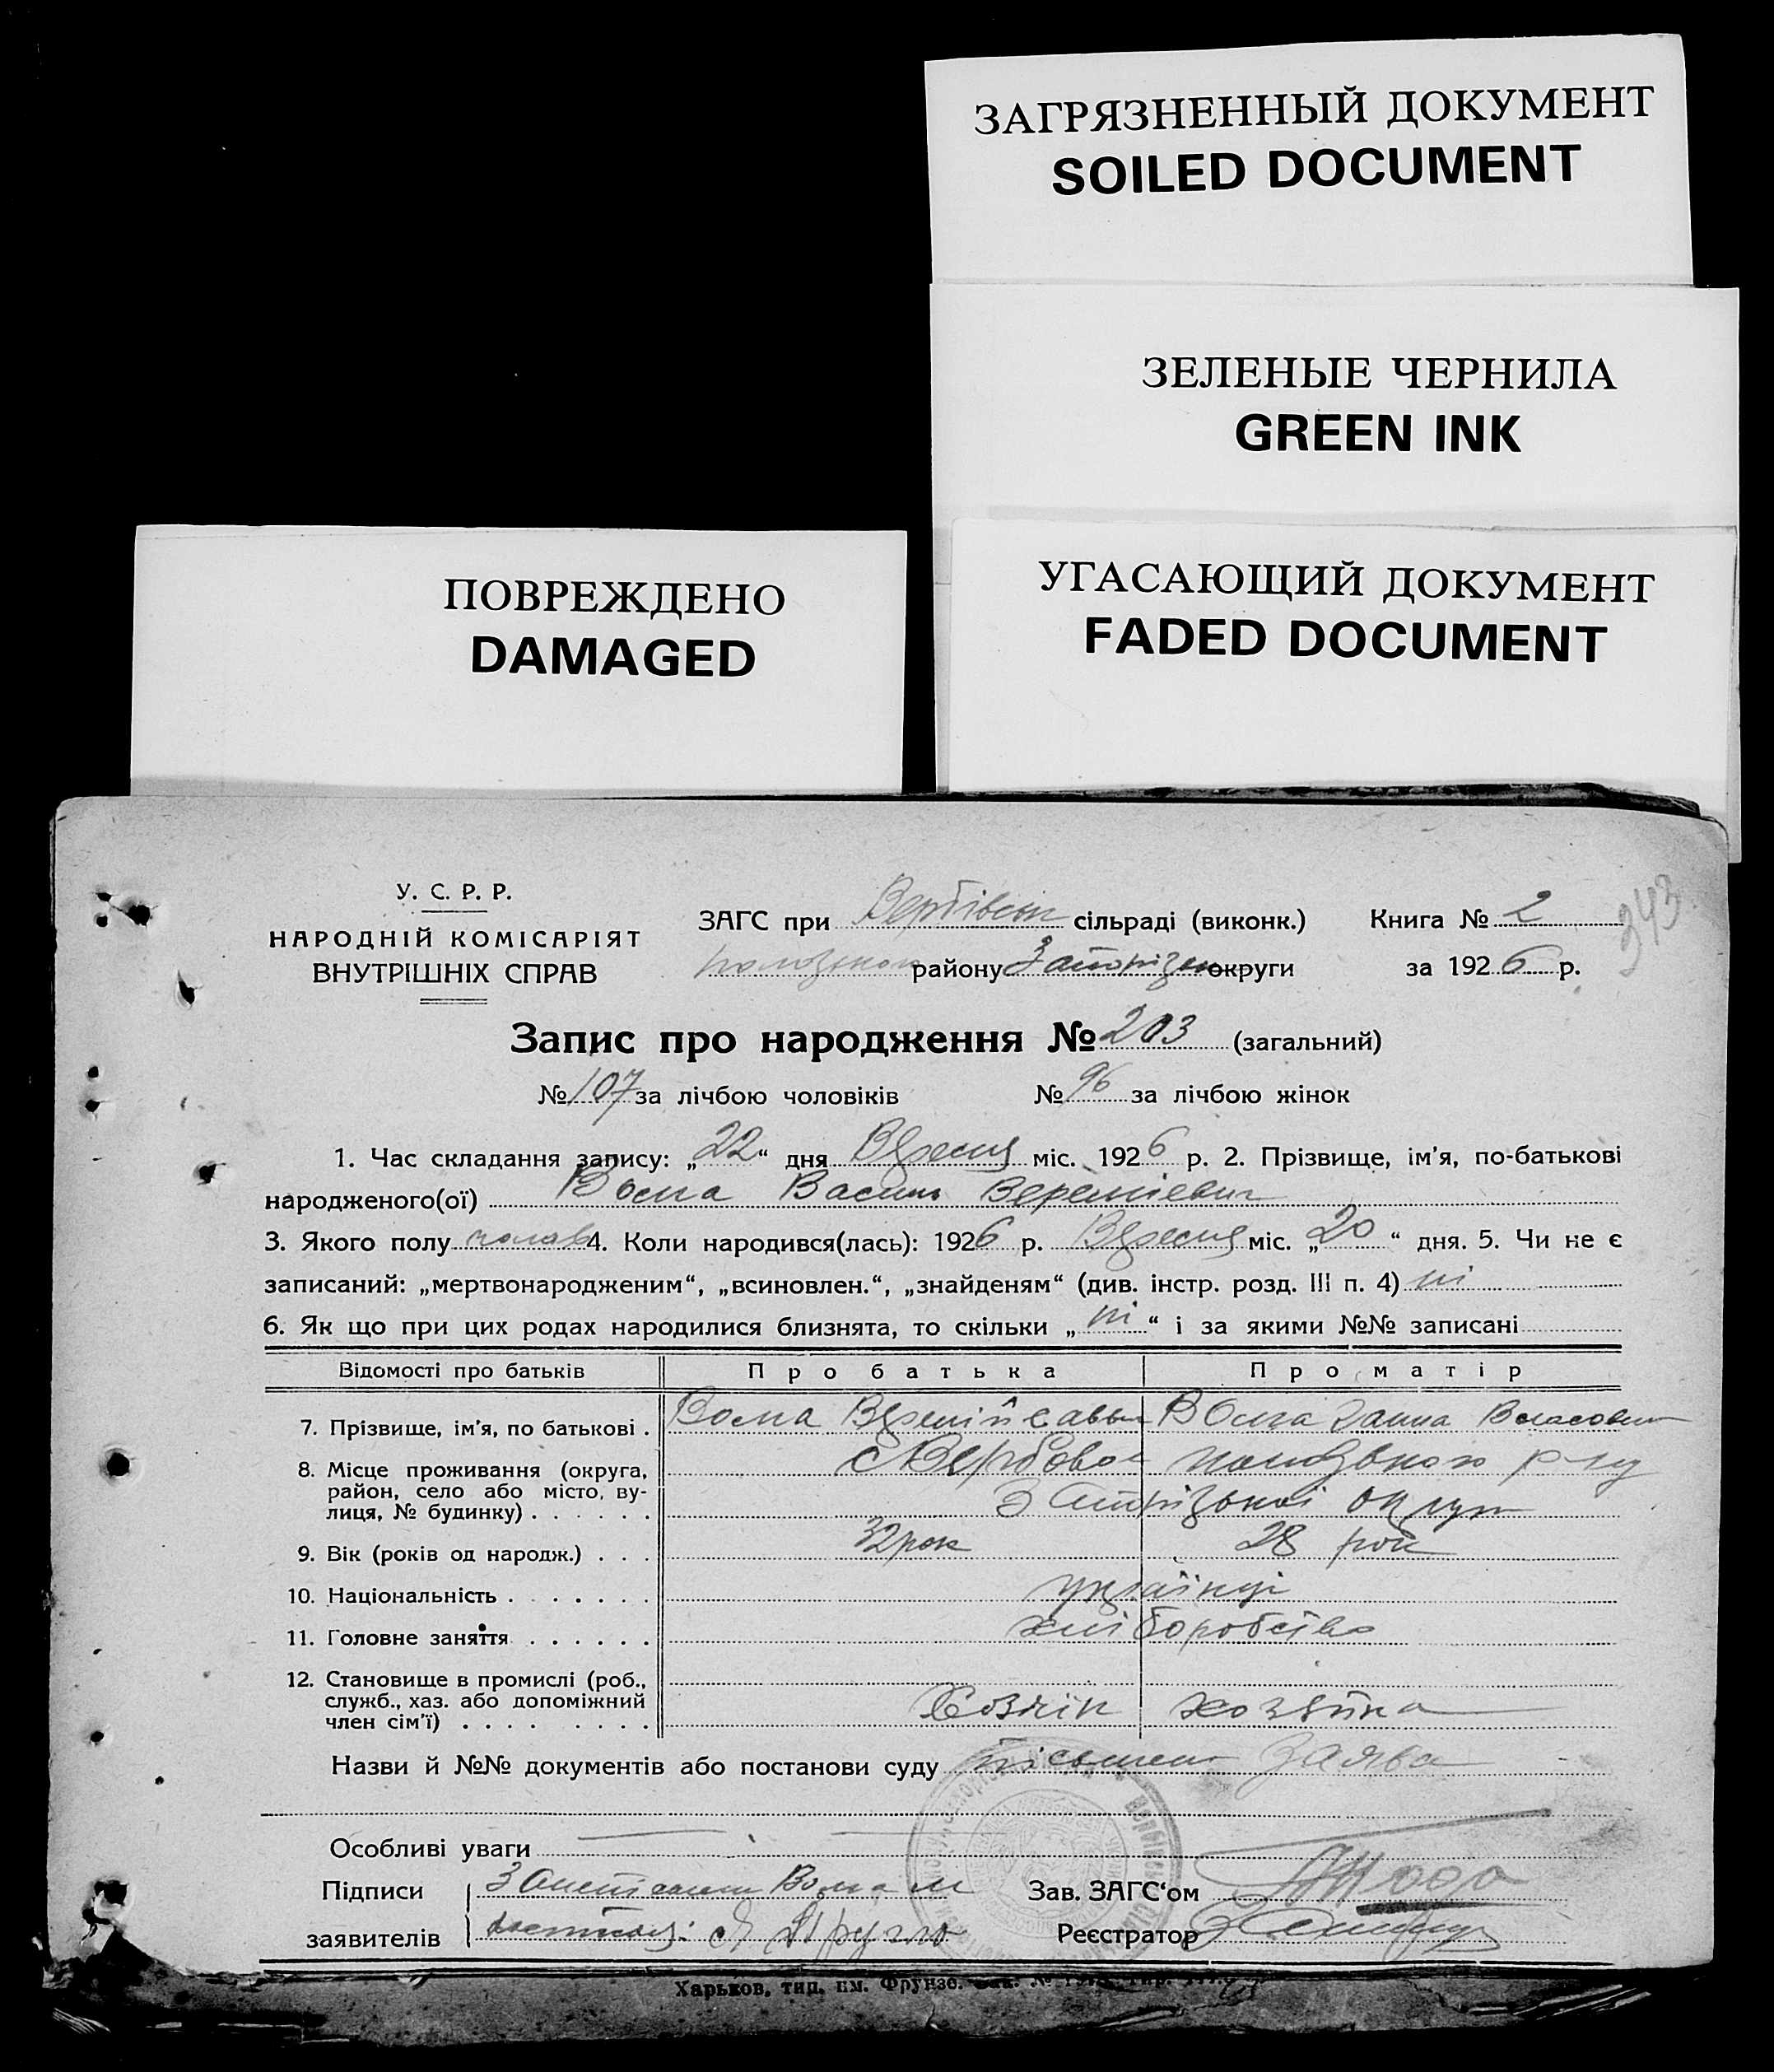 ЗАГРЯЗНЕННЫЙ ДОКУМЕНТ
SOILED DOCUMENT
ЗЕЛЕНЫЕ ЧЕРНИЛА
GREEN INK
ПОВРЕЖДЕНО
DAMAGED
УГАСАЮЩИЙ ДОКУМЕНТ
FADED DOCUMENT
343
У. С. Р. Р.
НАРОДНІЙ КОМІСАРІЯТ
ВНУТРІШНІХ СПРАВ
ЗАГС при Вербівськ сільраді (виконк.) Книга № 2
району Запоріз округи за 1926 р.
Запис про народження № 203 (загальний)
№ 107 за лічбою чоловіків № 96 за лічбою жінок
1. Час складання запису: „22“ дня Вересня міс. 1926 р. 2. Прізвище, ім'я, по-батькові
народженого(ої) Василь
3. Якого полу чолов 4. Коли народився(лась): 1926 р. Вересня міс. „20“ дня. 5. Чи не є
записаний: „мертвонародженим“, „всиновлен.“, „знайденям“ (див. інстр. розд. III п. 4) ні
6. Як що при цих родах народилися близнята, то скільки „ні“ і за якими №№ записані
Відомості про батьків Про батька Про матір
7. Прізвище, ім'я, по батькові . Ганна
8. Місце проживання (округа, с Вербово
район, село або місто, ву-
лиця, № будинку) . . . . . . Запорізької округи
9. Вік (років од народж.) . . . 32 рок 28 рок
10. Національність . . . . . . . українці
11. Головне заняття . . . . . . хліборобство
12. Становище в промислі (роб.,
служб., хаз. або допоміжний
член сім'ї) . . . . . . . . хозяїка
Назви й №№ документів або постанови суду заява
Особливі уваги
Підписи
Зав. ЗАГС'ом
заявителів
Реєстратор
Харьков, тип. им. Фрунзе.